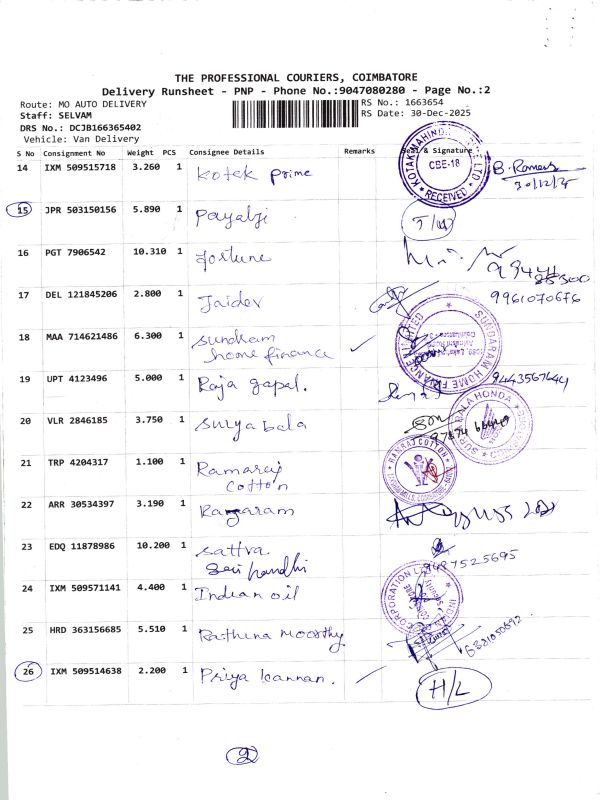 THE PROFESSIONAL COURIERS, COIMBATORE
Delivery Runsheet - PNP - Phone No.:9047080280 - Page No.:2
Route: MO AUTO DELIVERY
RS No.: 1663654
Staff: SELVAM
RS Date: 30-Dec-2025
DRS No.: DCJB166365402
Vehicle: Van Delivery
S No Consignment No Weight PCS Consignee Details Remarks Seal & Signature
14 IXM 509515718 3.260 1 Kotak prime
KOTAK MAHINDRA PRIME LTD
CBE-18
* RECEIVED *
30/12/25
15 JPR 503150156 5.890 1 Payalji
16 PGT 7906542 10.310 1 fortune
17 DEL 121845206 2.800 1 Jaidev
9961070676
18 MAA 714621486 6.300 1 Sundram
home finance
SUNDARAM HOME FINANCE LIMITED
19 UPT 4123496 5.000 1 Raja gopal.
9443567644
20 VLR 2846185 3.750 1 Suryabala
SURYABALA HONDA
21 TRP 4204317 1.100 1 Ramaraj
Cotton
RAMRAJ COTTON
22 ARR 30534397 3.190 1 Rajaram
23 EDQ 11878986 10.200 1 Sattva
9487525695
24 IXM 509571141 4.400 1 Indian oil
25 HRD 363156685 5.510 1 Rathina Moorthy
26 IXM 509514638 2.200 1 Priya kannan.
H/L
2